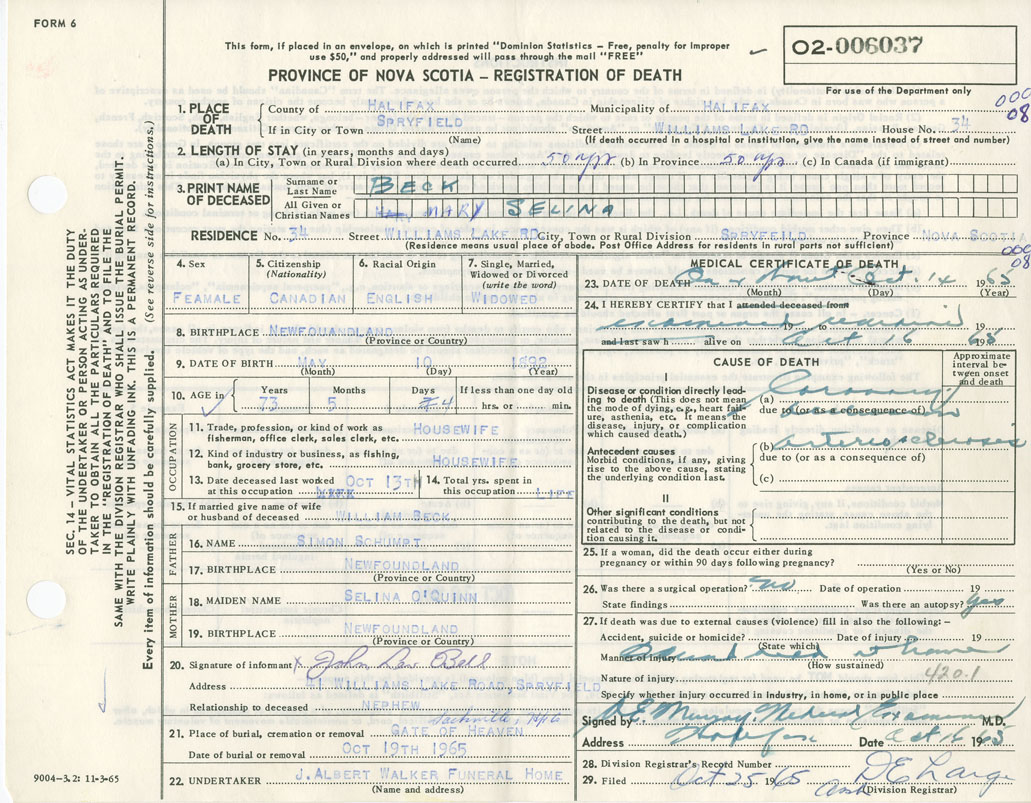 FORM 6
This form, if placed in an envelope, on which is printed "Dominion Statistics – Free, penalty for improper
use $50," and properly addressed will pass through the mail "FREE"
O2-006037
For use of the Department only
PROVINCE OF NOVA SCOTIA – REGISTRATION OF DEATH
000
08
1. PLACE OF DEATH
County of HALIFAX Municipality of HALIFAX
If in City or Town SPRYFIELD Street WILLIAMS LAKE RD House No. 34
(Name) (If death occurred in a hospital or institution, give the name instead of street and number)
2. LENGTH OF STAY (in years, months and days)
(a) In City, Town or Rural Division where death occurred 50 yrs (b) In Province 50 yrs (c) In Canada (if immigrant)
3. PRINT NAME OF DECEASED
Surname or Last Name BECK
All Given or Christian Names MARY SELINA
RESIDENCE No. 34 Street WILLIAMS LAKE RD City, Town or Rural Division SPRYFEILD Province NOVA SCOTIA
(Residence means usual place of abode. Post Office Address for residents in rural parts not sufficient)
000
08
4. Sex 5. Citizenship (Nationality) 6. Racial Origin 7. Single, Married, Widowed or Divorced (write the word)
FEAMALE CANADIAN ENGLISH WIDOWED
8. BIRTHPLACE NEWFOUANDLAND
(Province or Country)
9. DATE OF BIRTH MAY 10 1892
(Month) (Day) (Year)
10. AGE in Years Months Days If less than one day old
73 5 4 hrs. or min.
OCCUPATION
11. Trade, profession, or kind of work as fisherman, office clerk, sales clerk, etc. HOUSEWIFE
12. Kind of industry or business, as fishing, bank, grocery store, etc. HOUSEWIFE
13. Date deceased last worked at this occupation OCT 13TH
14. Total yrs. spent in this occupation LIFE
15. If married give name of wife or husband of deceased WILLIAM BECK
FATHER
16. NAME SIMON SCHUMPT
17. BIRTHPLACE NEWFOUNDLAND
(Province or Country)
MOTHER
18. MAIDEN NAME SELINA O'QUINN
19. BIRTHPLACE NEWFOUNDLAND
(Province or Country)
20. Signature of informant X John Bell
Address 41 WILLIAMS LAKE ROAD, SPRYFIELD
Relationship to deceased NEPHEW
21. Place of burial, cremation or removal GATE OF HEAVEN
Sackville,
Date of burial or removal OCT 19TH 1965
22. UNDERTAKER J. ALBERT WALKER FUNERAL HOME
(Name and address)
MEDICAL CERTIFICATE OF DEATH
23. DATE OF DEATH On or about Oct. 14 1965
(Month) (Day) (Year)
24. I HEREBY CERTIFY that I attended deceased from
examined 19 to remains 19
and last saw h alive on Oct 16 1965
CAUSE OF DEATH
Approximate interval between onset and death
I
Disease or condition directly leading to death (This does not mean the mode of dying, e.g., heart failure, asthenia, etc. it means the disease, injury, or complication which caused death.)
(a) Coronary
due to (or as a consequence of)
Antecedent causes
Morbid conditions, if any, giving rise to the above cause, stating the underlying condition last.
(b) arteriosclerosis
due to (or as a consequence of)
(c)
II
Other significant conditions contributing to the death, but not related to the disease or condition causing it.
25. If a woman, did the death occur either during pregnancy or within 90 days following pregnancy?
(Yes or No)
26. Was there a surgical operation? No Date of operation 19
State findings Was there an autopsy? Yes
27. If death was due to external causes (violence) fill in also the following:–
Accident, suicide or homicide? Date of injury 19
(State which)
Manner of injury found dead at home
(How sustained)
Nature of injury 420.1
Specify whether injury occurred in industry, in home, or in public place
Signed by D.E. Murray. Medical Examiner M.D.
Address Halifax Date Oct 16 1965
28. Division Registrar's Record Number
29. Filed Oct 25 1965
(Division Registrar)
SEC. 14 – VITAL STATISTICS ACT MAKES IT THE DUTY
OF THE UNDERTAKER OR PERSON ACTING AS UNDER-
TAKER TO OBTAIN ALL THE PARTICULARS REQUIRED
IN THE "REGISTRATION OF DEATH" AND TO FILE THE
SAME WITH THE DIVISION REGISTRAR WHO SHALL ISSUE THE BURIAL PERMIT.
WRITE PLAINLY WITH UNFADING INK. THIS IS A PERMANENT RECORD.
Every item of information should be carefully supplied. (See reverse side for instructions.)
9004–3.2: 11-3-65